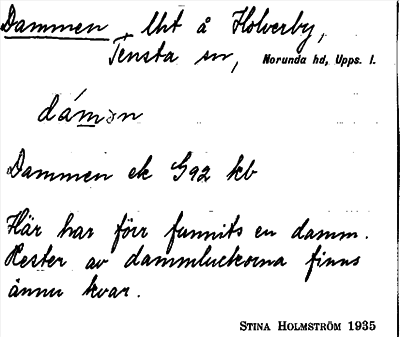 Dammen lht å Holverby,
Tensta sn, Norunda hd, Upps. l.
dámən
Dammen ek G92 kb
Här har förr funnits en damm.
Rester av dammluckorna finns
ännu kvar.
STINA HOLMSTRÖM 1935